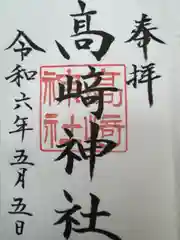 奉拝
高﨑神社
高﨑神社
令和六年五月五日